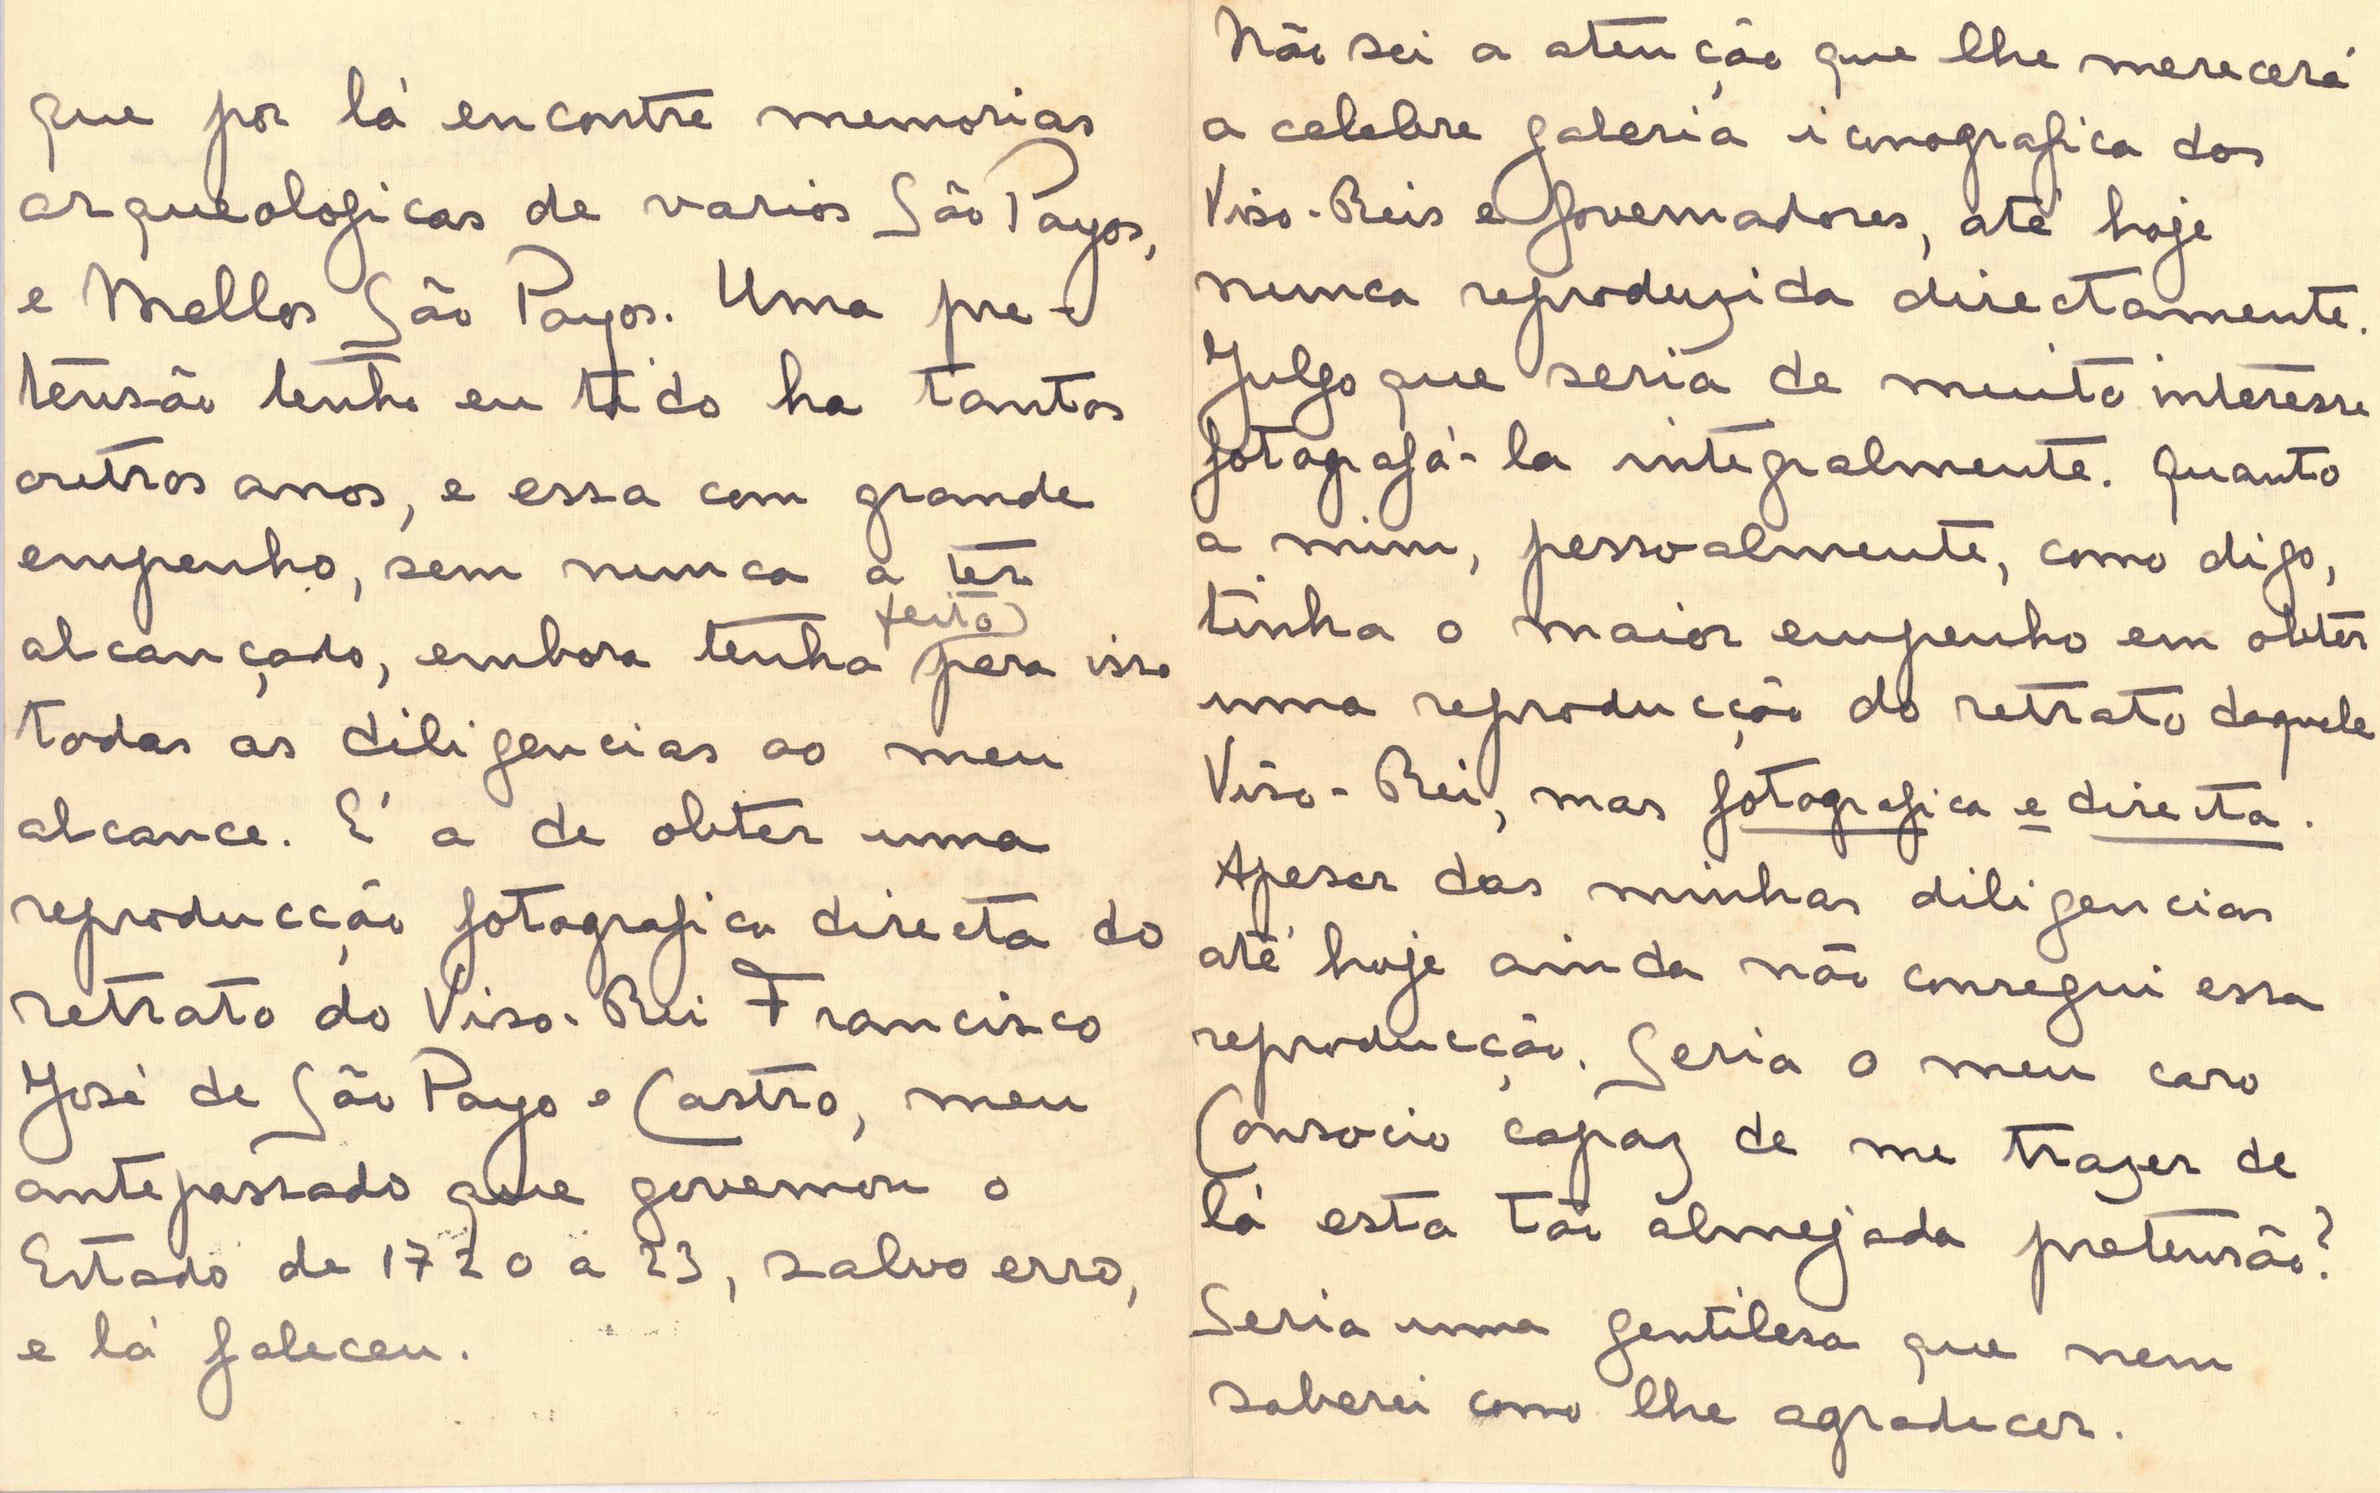 que por lá encontre memorias
arqueologicas de varios São Payos,
e Mellos São Payos. Uma pre-
tensão tenho eu tido ha tantos
outros anos, e essa com grande
empenho, sem nunca a ter
alcançado, embora tenha feito para isso
todas as diligencias ao meu
alcance. É a de obter uma
reproducção fotografica directa do
retrato do Viso-Rei Francisco
José de São Payo e Castro, meu
antepassado que governou o
Estado de 1720 a 23, salvo erro,
e lá faleceu.
Não sei a atenção que lhe merecerá
a celebre galeria iconografica dos
Viso-Reis e Governadores, até hoje
nunca reproduzida directamente.
Julgo que seria de muito interesse
fotografá-la integralmente. Quanto
a mim, pessoalmente, como digo,
tinha o maior empenho em obter
uma reproducção do retrato daquele
Viso-Rei, mas fotografica e directa.
Apesar das minhas diligencias
até hoje ainda não consegui essa
reproducção. Seria o meu caro
Consocio capaz de me trazer de
lá esta tão almejada pretensão?
Seria uma gentilesa que nem
saberei como lhe agradecer.